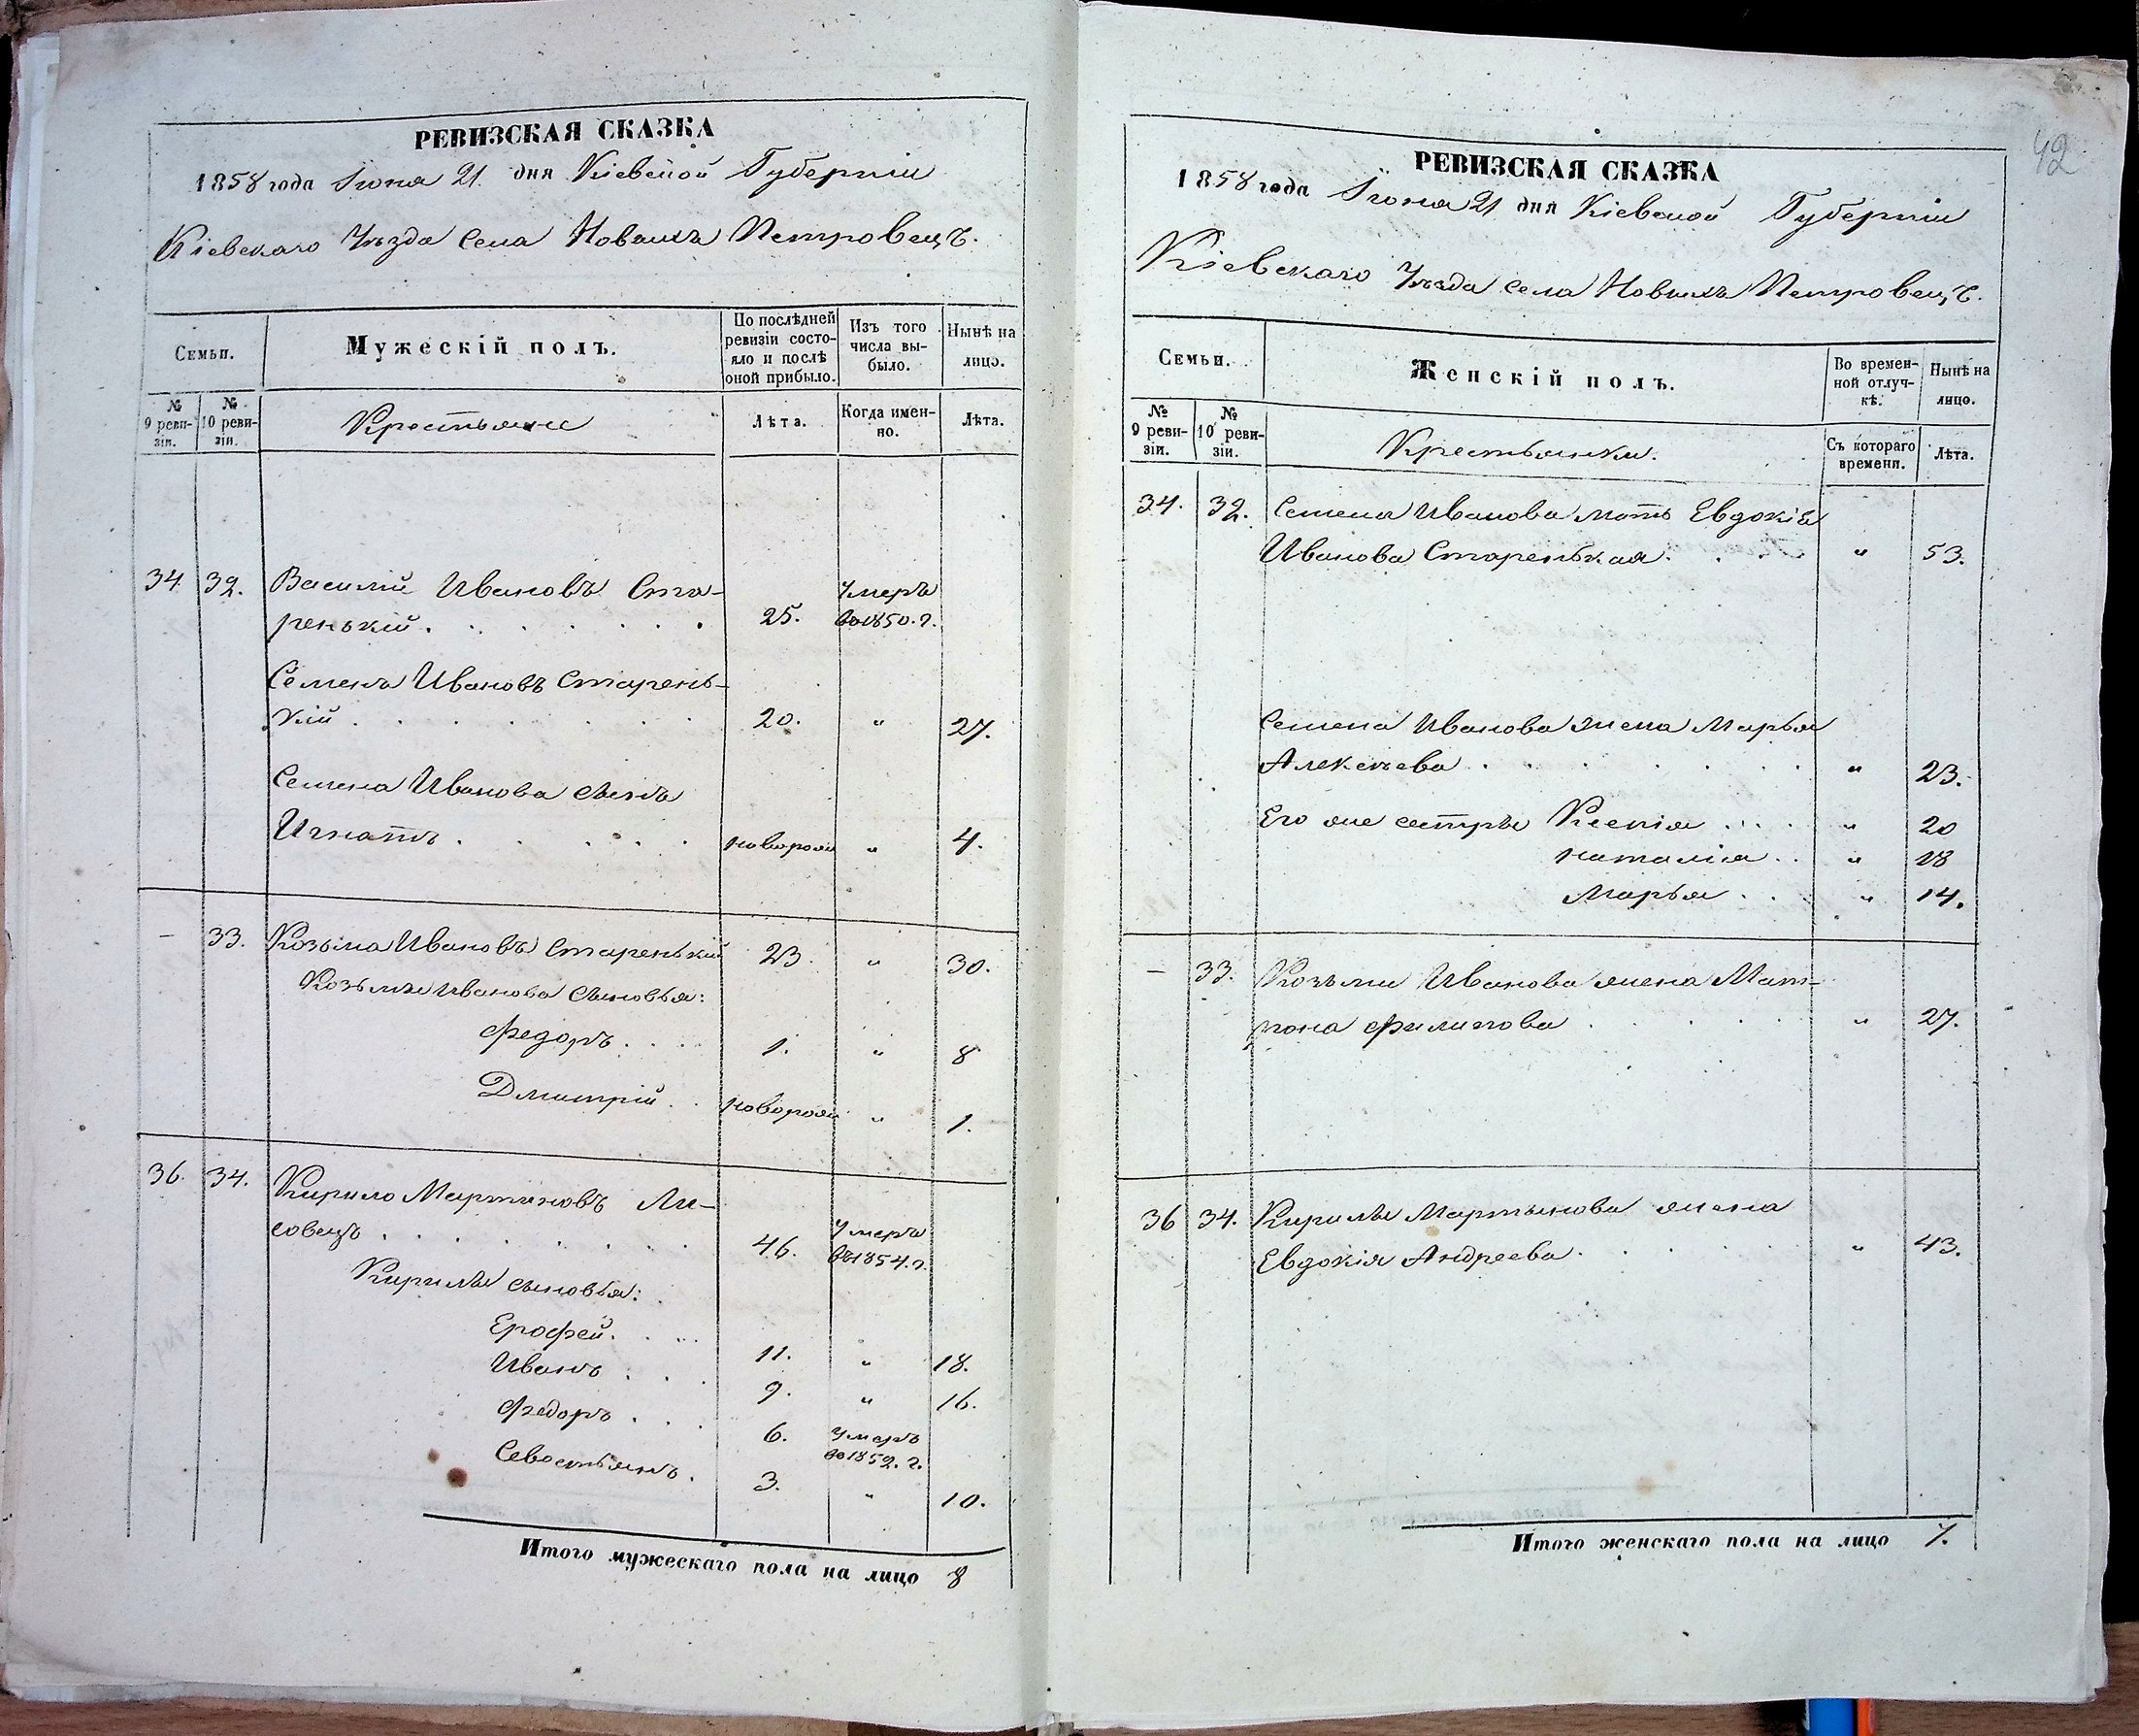 РЕВИЗСКАЯ СКАЗКА
1858 года Іюня 21. дня Кіевской Губерніи
Кіевскаго Уѣзда Села Новыхъ Петровецъ.
Семьи.
Мужескій полъ.
По послѣдней ревизіи состояло и послѣ оной прибыло.
Изъ того числа выбыло.
Нынѣ на лицо.
№ 9 ревизіи.
№ 10 ревизіи.
Крестьяне
Лѣта.
Когда именно.
Лѣта.
34. 32. Василій Ивановъ Ста-
ренькій. 25. Умеръ во 1850. г.
Семенъ Ивановъ Старень-
кій. 20. " 27.
Семена Иванова сынъ
Игнатъ. новорож " 4.
– 33. Козьма Ивановъ Старенькій 23. " 30.
Козьмы Иванова сыновья:
Федоръ. 1. " 8
Дмитрій. новорож " 1.
36. 34. Кирило Мартиновъ Ли-
совецъ. 46. Умеръ въ 1854. г.
Кирилы сыновья:
Ерофей. 11. " 18.
Иванъ. 9. " 16.
Федоръ. 6. Умеръ во 1852. г.
Севостьянъ. 3. " 10.
Итого мужескаго пола на лицо 8
42
РЕВИЗСКАЯ СКАЗКА
1858 года Іюня 21 дня Кіевской Губерніи
Кіевскаго Уѣзда села Новыхъ Петровецъ.
Семьи.
Женскій полъ.
Во временной отлучкѣ.
Нынѣ на лицо.
№ 9 ревизіи.
№ 10 ревизіи.
Крестьянки.
Съ котораго времени.
Лѣта.
34. 32. Семена Иванова мать Евдокія
Иванова Старенькая. " 53.
Семена Иванова жена Марья
Алексѣева. " 23.
Его же сестры Ксенія " 20
Наталія " 18
Марья " 14.
– 33. Козьмы Иванова жена Мат-
рона Филипова " 27.
36 34. Кирилы Мартынова жена
Евдокія Андреева. " 43.
Итого женскаго пола на лицо 7.